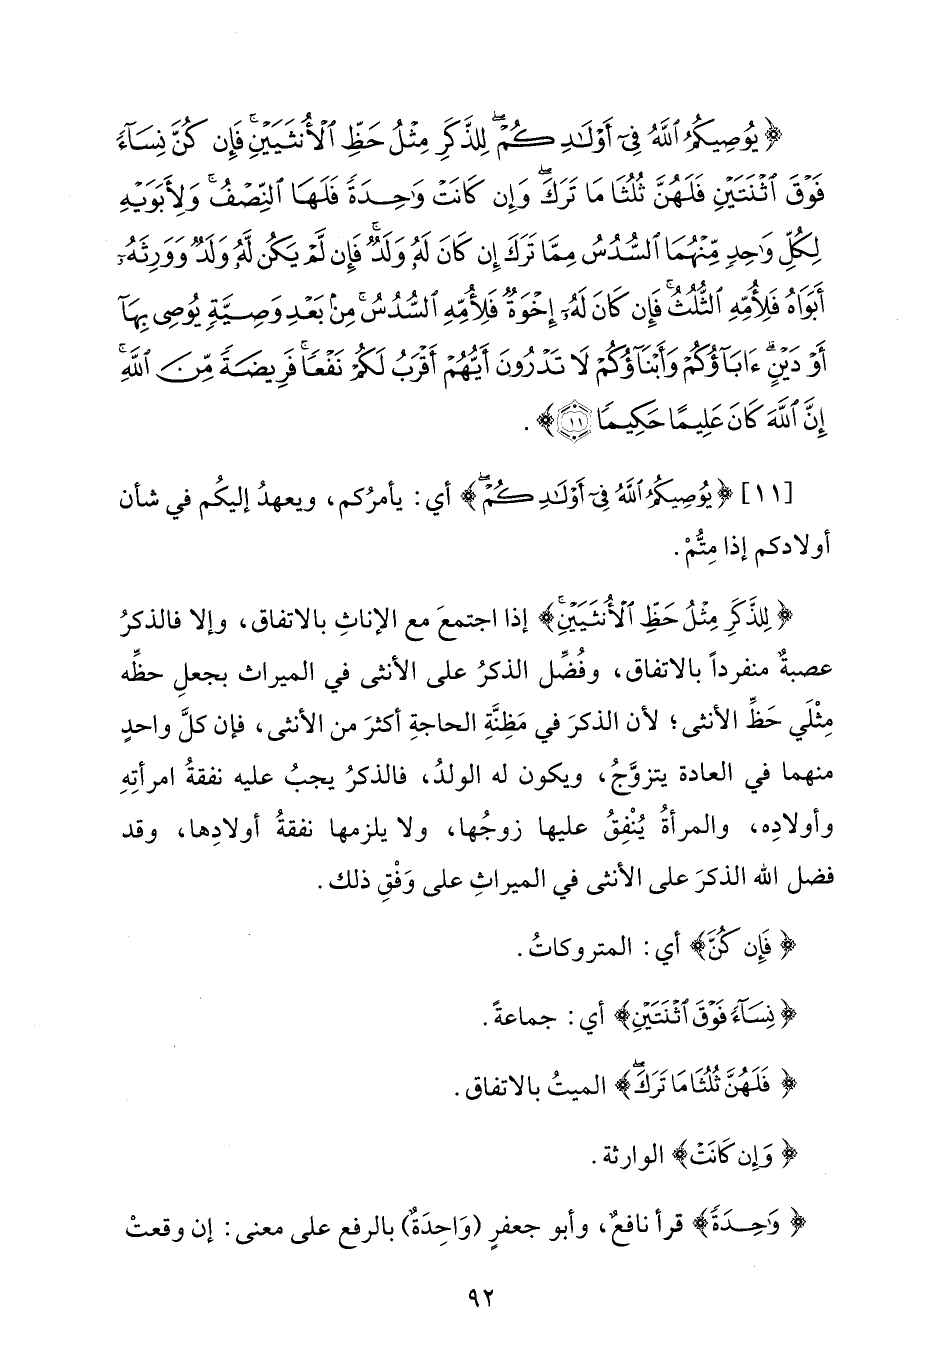 ﴿يُوصِيكُمُ ٱللَّهُ فِىٓ أَوْلَـٰدِكُمْ ۖ لِلذَّكَرِ مِثْلُ حَظِّ ٱلْأُنثَيَيْنِ ۚ فَإِن كُنَّ نِسَآءً
فَوْقَ ٱثْنَتَيْنِ فَلَهُنَّ ثُلُثَا مَا تَرَكَ ۖ وَإِن كَانَتْ وَٰحِدَةً فَلَهَا ٱلنِّصْفُ ۚ وَلِأَبَوَيْهِ
لِكُلِّ وَٰحِدٍ مِّنْهُمَا ٱلسُّدُسُ مِمَّا تَرَكَ إِن كَانَ لَهُۥ وَلَدٌ ۚ فَإِن لَّمْ يَكُن لَّهُۥ وَلَدٌ وَوَرِثَهُۥٓ
أَبَوَاهُ فَلِأُمِّهِ ٱلثُّلُثُ ۚ فَإِن كَانَ لَهُۥٓ إِخْوَةٌ فَلِأُمِّهِ ٱلسُّدُسُ ۚ مِنۢ بَعْدِ وَصِيَّةٍ يُوصِى بِهَآ
أَوْ دَيْنٍ ۗ ءَابَآؤُكُمْ وَأَبْنَآؤُكُمْ لَا تَدْرُونَ أَيُّهُمْ أَقْرَبُ لَكُمْ نَفْعًا ۚ فَرِيضَةً مِّنَ ٱللَّهِ ۗ
إِنَّ ٱللَّهَ كَانَ عَلِيمًا حَكِيمًا ١١﴾ .
[١١] ﴿يُوصِيكُمُ ٱللَّهُ فِىٓ أَوْلَـٰدِكُمْ ۖ﴾ أي: يأمرُكم، ويعهدُ إليكُم في شأن
أولادكم إذا مِتُّمْ.
﴿لِلذَّكَرِ مِثْلُ حَظِّ ٱلْأُنثَيَيْنِ ۚ﴾ إذا اجتمعَ مع الإناثِ بالاتفاق، وإلا فالذكرُ
عصبةٌ منفرداً بالاتفاق، وفُضِّل الذكرُ على الأنثى في الميراث بجعلِ حظِّه
مِثْلَي حَظِّ الأنثى؛ لأن الذكرَ في مَظِنَّةِ الحاجةِ أكثرَ من الأنثى، فإن كلَّ واحدٍ
منهما في العادة يتزوَّجُ، ويكون له الولدُ، فالذكرُ يجبُ عليه نفقةُ امرأتِهِ
وأولادِه، والمرأةُ يُنْفِقُ عليها زوجُها، ولا يلزمها نفقةُ أولادِها، وقد
فضل الله الذكرَ على الأنثى في الميراثِ على وَفْقِ ذلك.
﴿فَإِن كُنَّ﴾ أي: المتروكاتُ.
﴿نِسَآءً فَوْقَ ٱثْنَتَيْنِ﴾ أي: جماعةً.
﴿فَلَهُنَّ ثُلُثَا مَا تَرَكَ ۖ﴾ الميتُ بالاتفاق.
﴿وَإِن كَانَتْ﴾ الوارثة.
﴿وَٰحِدَةً﴾ قرأ نافعٌ، وأبو جعفرٍ (وَاحِدَةٌ) بالرفع على معنى: إن وقعتْ
٩٢